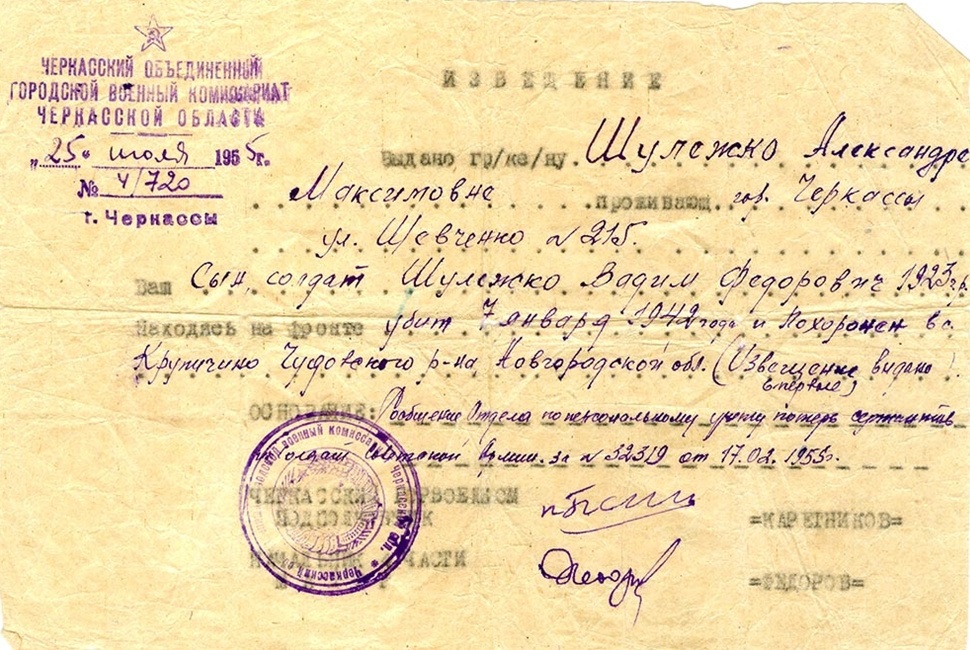 ЧЕРКАССКИЙ ОБЪЕДИНЕННЫЙ
ГОРОДСКОЙ ВОЕННЫЙ КОМИССАРИАТ
ЧЕРКАССКОЙ ОБЛАСТИ
"25" июля 1955г.
№ 4/720
г. Черкассы
ИЗВЕЩЕНИЕ
Выдано гр/ке/ну. Шулежко Александре
Максимовне проживающ. гор. Черкассы
ул. Шевченко № 215.
Ваш Сын, солдат Шулежко Вадим Федорович 1923г.р.
Находясь на фронте убит 7 января 1942 года и Похоронен в с.
Крупичино Чудовского р-на Новгородской обл. (Извещение выдано
впервые)
ОСНОВАНИЕ: Сообщение Отдела по персональному учету потерь сержантов
и солдат Советской Армии за № 32319 от 17.02.1955г.
ЧЕРКАССКИЙ ГОРВОЕНКОМ
ПОДПОЛКОВНИК =КАРЕТНИКОВ=
НАЧАЛЬНИК ЧАСТИ
=ФЕДОРОВ=